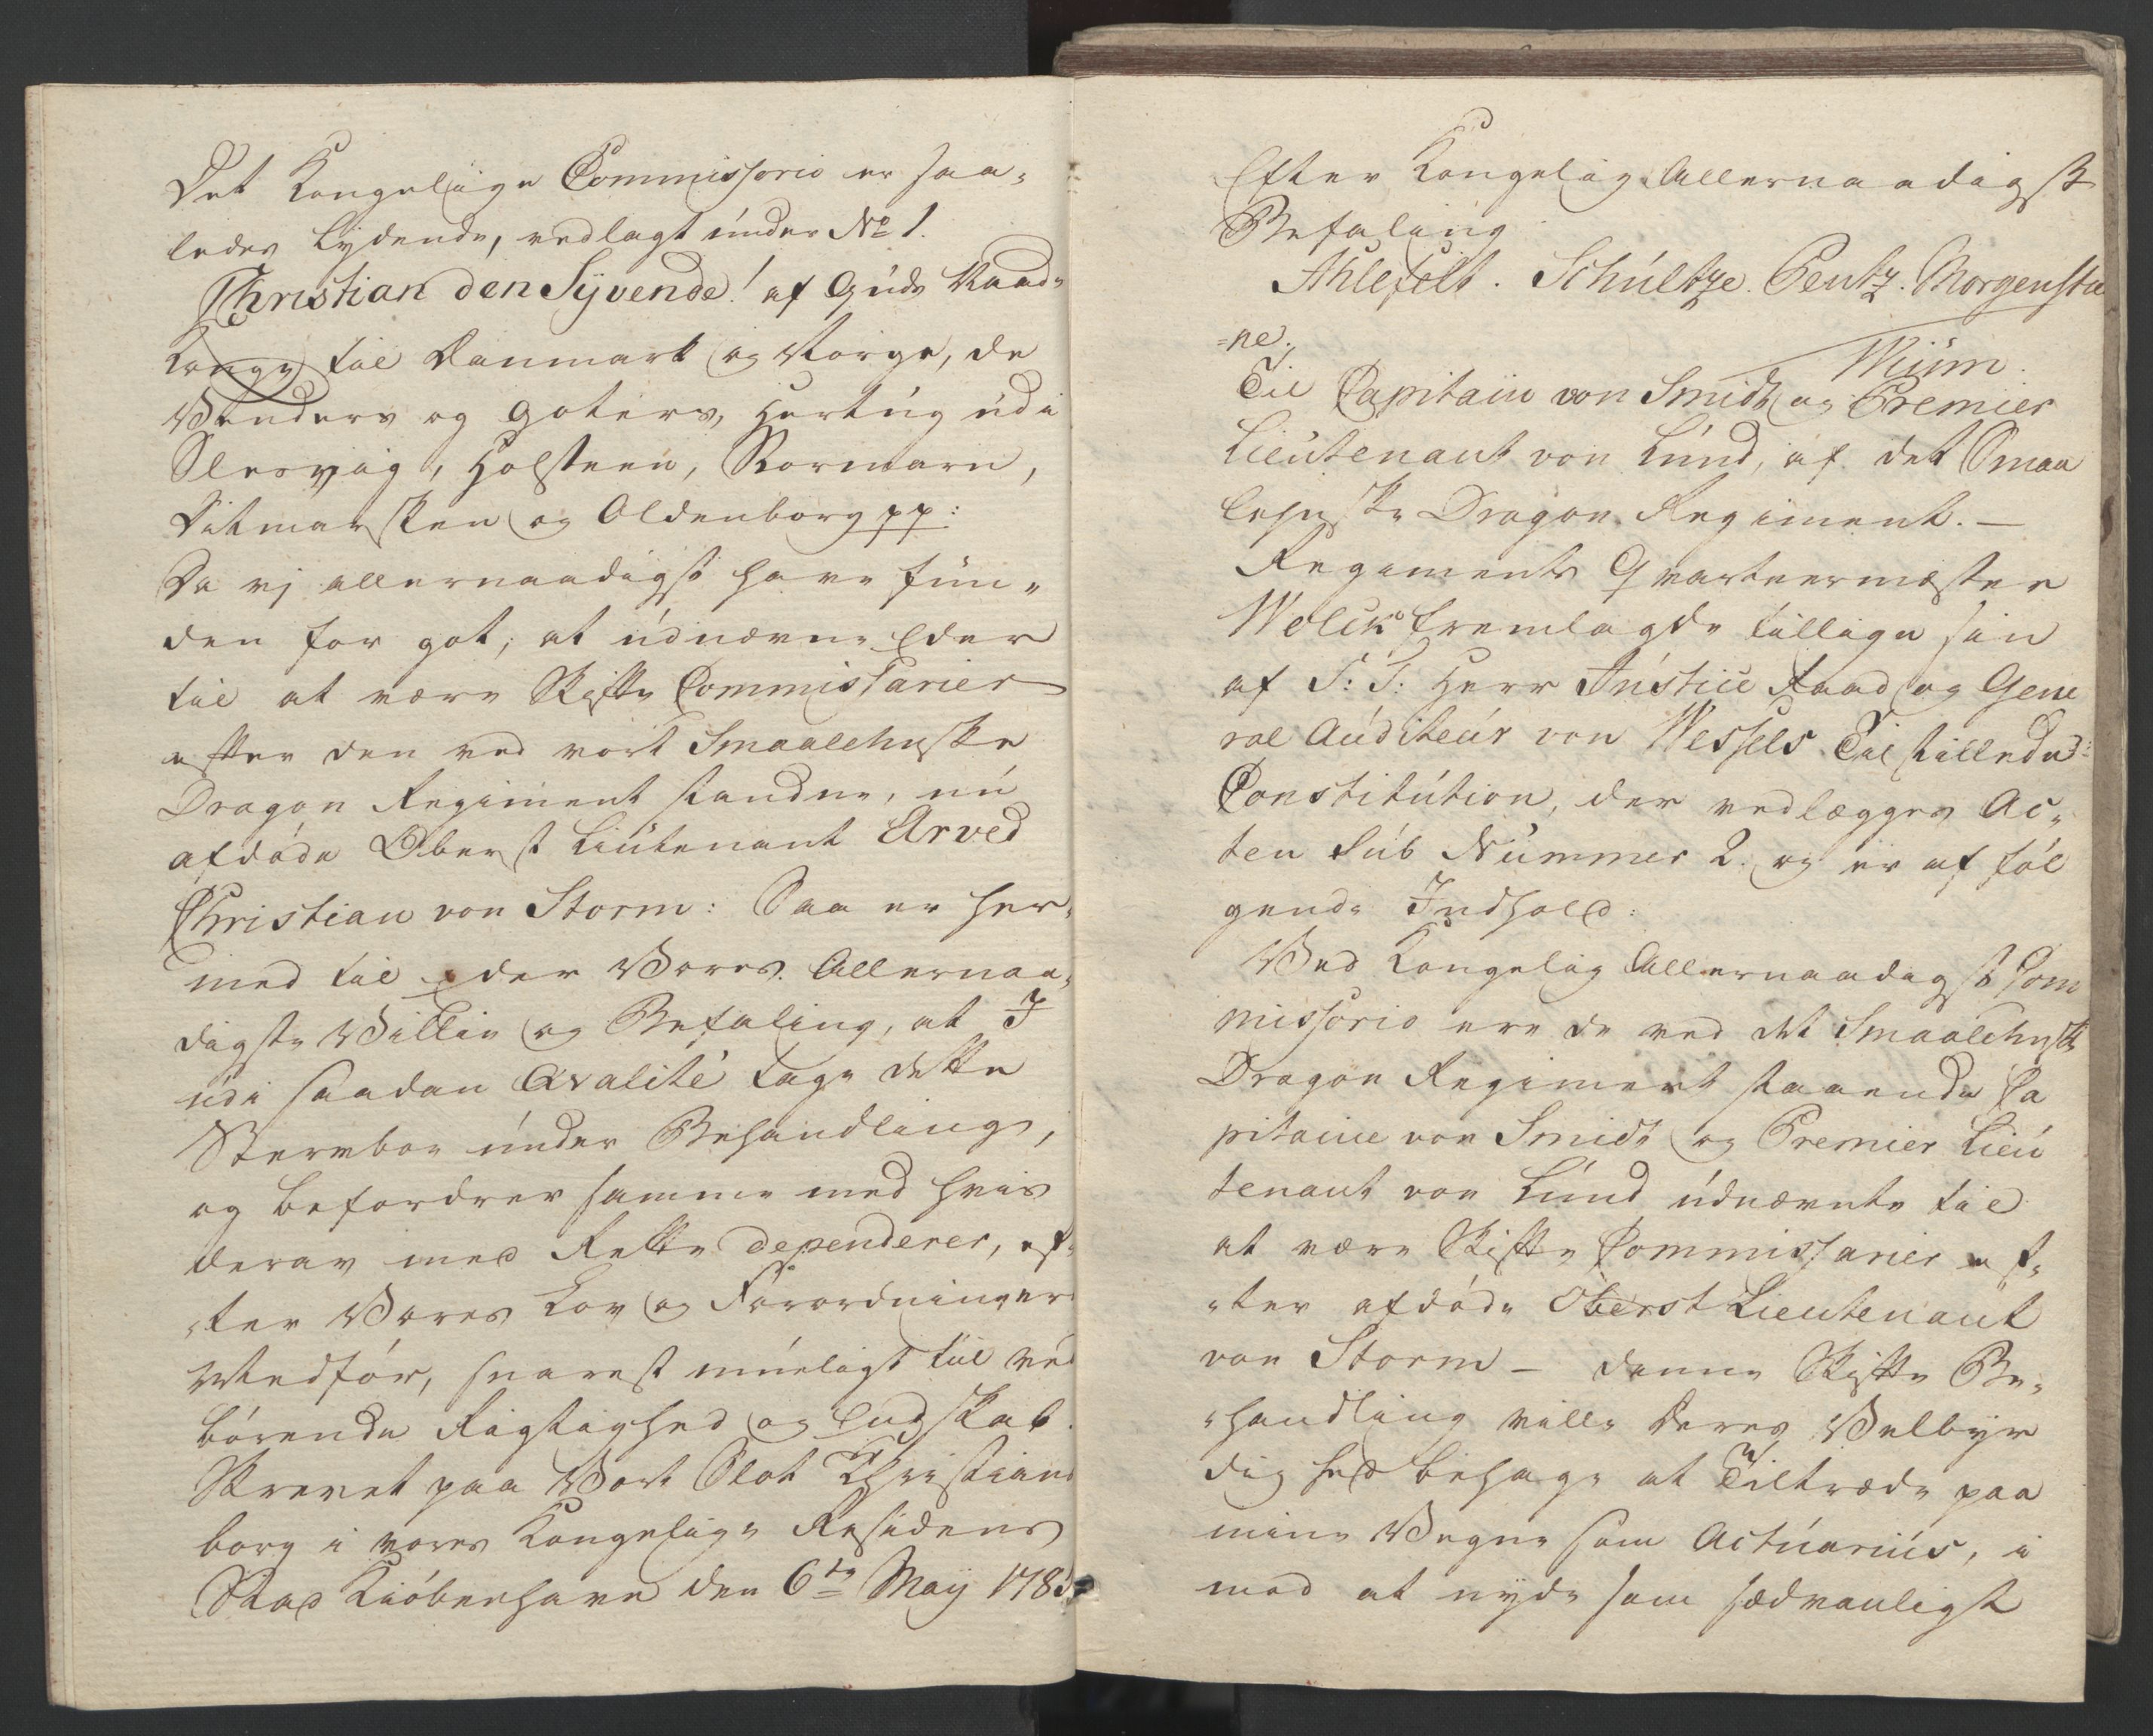 Det Kongelige Commissorio er saa-
ledes Lydende, vedlagt under No 1.
Christian den Syvende! af Guds Naade
Konge til Danmark og Norge, de
Venders og Goters, Hertug udi
Slesvig, Holsteen, Stormarn,
Ditmarsken og Oldenborg pp:
Da vj allernaadigst have fun-
den for got, at udnævne Eder
til at være Skifte Commissarier
efter den ved vort Smaalehnske
Dragon Regiment staaende, nu
afdøde Oberst Lieutenant Arved
Christian von Storm: Saa er her-
med til Eder Vores Allernaa-
digste Villie og Befaling, at I
udi saadan Qvalité tage dette
Stervboe under Behandling,
og befordrer samme med hvis
derav med Rette dependerer, ef-
ter Vores Lov og Forordninger
Medfør, snarest mueligt til ved
børende Rigtighed og Endskab.
Skrevet paa Vort Slot Christians
borg i vores Kongelige Residens
Stad Kiøbenhavn den 6te Maij 1785
Efter Kongelig Allernaadigst
Befaling
Ahlefelt. Schultze. Pentz. Morgenstie
=ne.
Wiim.
Til Capitain von Smidt og Premier
Lieutenant von Lund, af det Smaa
lehnske Dragon Regiment.—
Regiments Qvarteermester
Wolck fremlagde tillige sin
af S: T: Herr Justice Raad og Gene
ral Auditeur von Wessels Tilstillede
Constitution, der vedlægges Ac-
ten Sub Nummer 2. og er af føl
gende Indhold:
Ved Kongelig Allernaadigst Com
missorio ere de ved det Smaalehnske
Dragon Regiment staaende Ca
pitaine von Smidt og Premier Lieu
tenant von Lund udnævnte til
at være Skifte Commissarier ef-
-ter afdøde Oberst Lieutenant
von Storm — denne Skifte Be-
-handling ville Deres Velbyr
dighed behage at Tiltræde paa
mine Vegne som Actuarius, i
mod at nyde som sædvanligt